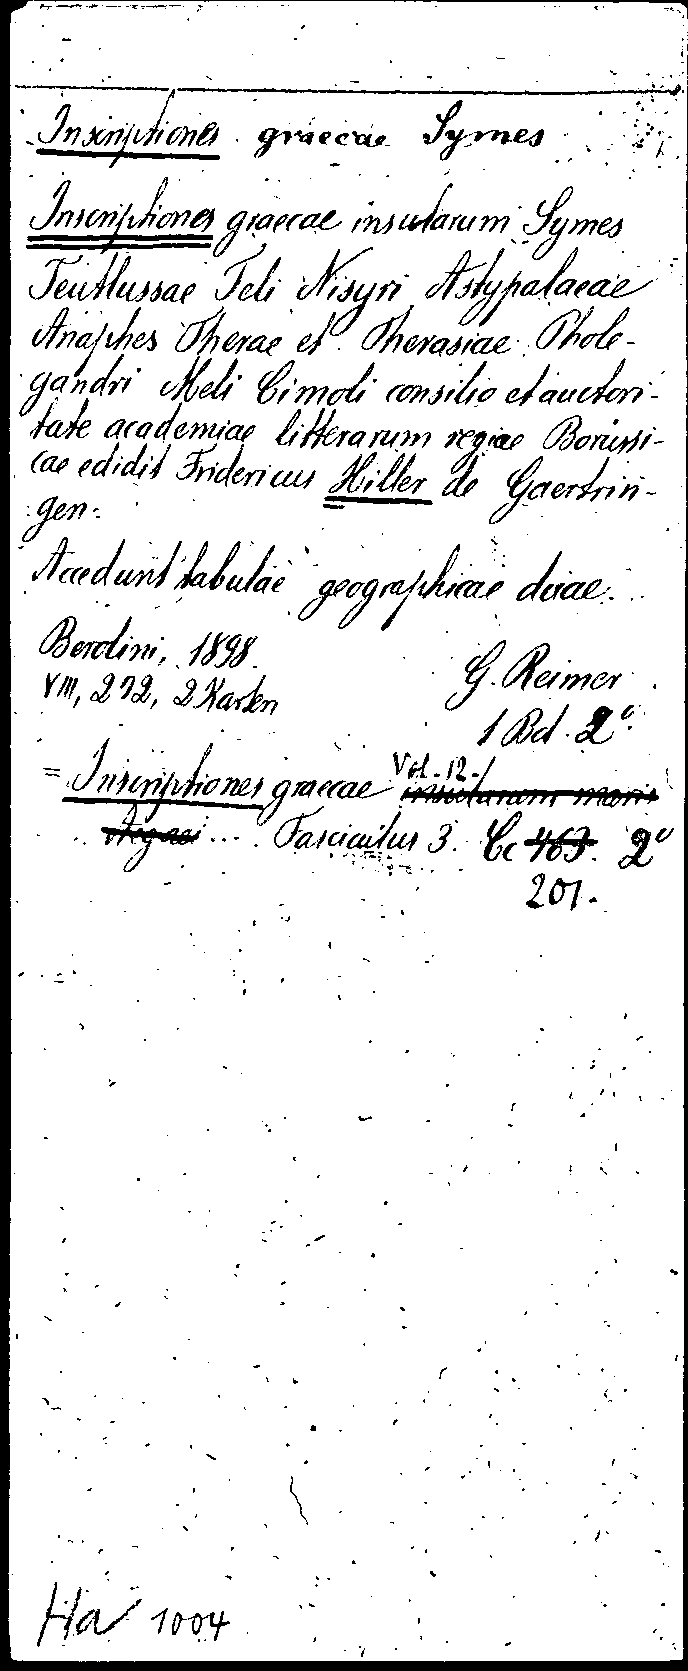 Inscriptiones graecae Symes
Inscriptiones graecae insularum Symes
Teutlussae Teli Nisyri Astypalaeae
Anaphes Therae et Therasiae Phole-
gandri Meli Cimoli consilio et auctori-
tate academiae litterarum regiae Borussi-
cae edidit Fridericus Hiller de Gaertrin-
gen.
Accedunt tabulae geographicae duae.
Berolini, 1898. G. Reimer
VIII, 272, 2 Karten
1 Bd. 2°
Vol. 12.
= Inscriptiones graecae insularum maris
Aegaei .... Fasciculus 3. Cc 463. 2°
201.
Ha 1004